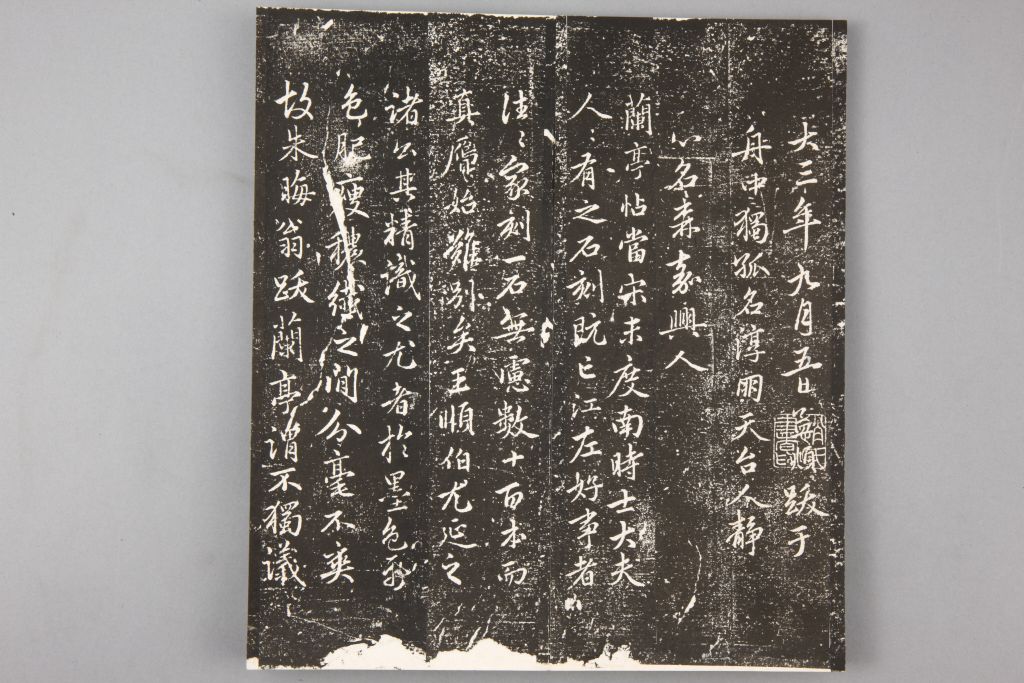 大三年九月五日孟頫跋于
舟中獨孤名淳朋天台人靜
心名森嘉興人
蘭亭帖當宋未度南時士大夫
人〻有之石刻既亡江左好事者
往〻家刻一石無慮數十百本而
真贗始難別矣王順伯尤延之
諸公其精識之尤者於墨色形
色肥瘦穠纖之間分毫不爽
故朱晦翁跋蘭亭謂不獨議